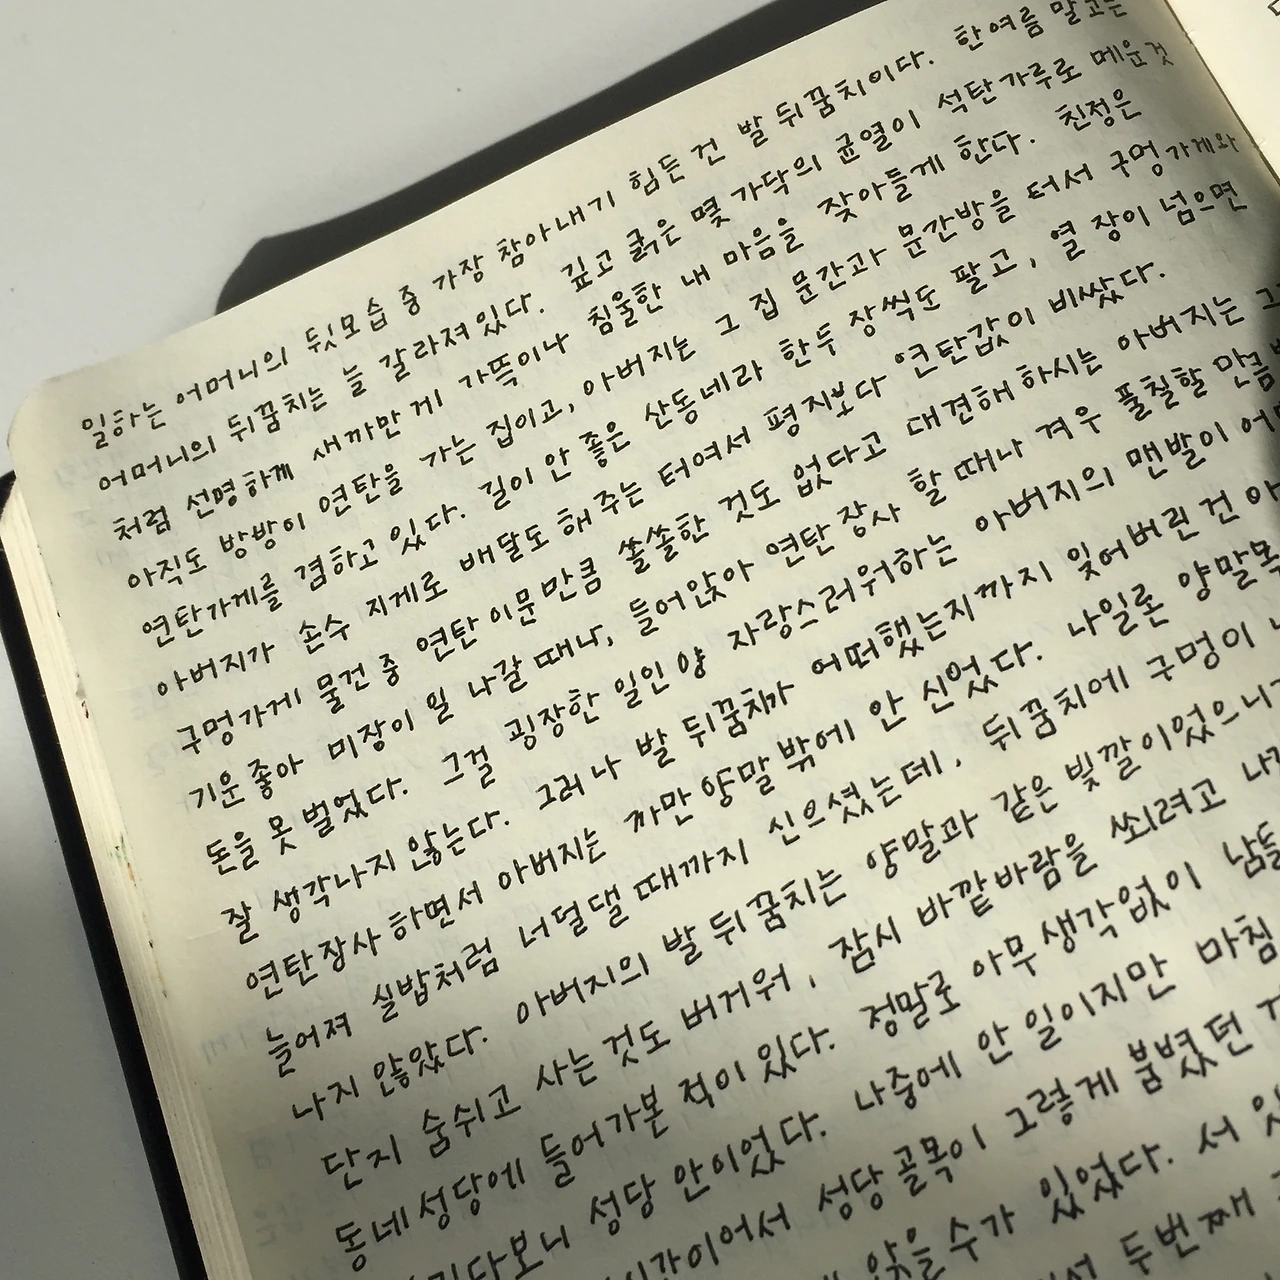 일하는 어머니의 뒷모습 중 가장 참아내기 힘든 건 발 뒤꿈치이다. 한여름 말고는
어머니의 뒤꿈치는 늘 갈라져있다. 깊고 굵은 몇 가닥의 균열이 석탄가루로 메운것
처럼 선명하게 새까만게 가뜩이나 침울한 내 마음을 잦아들게 한다. 친정은
아직도 방방이 연탄을 가는 집이고, 아버지는 그 집 문간과 문간방을 터서 구멍가게와
연탄가게를 겸하고 있다. 길이 안 좋은 산동네라 한두 장씩도 팔고, 열 장이 넘으면
아버지가 손수 지게로 배달도 해 주는 터여서 평지보다 연탄값이 비쌌다.
구멍가게 물건 중 연탄 이문만큼 쏠쏠한 것도 없다고 대견해 하시는 아버지는
기운좋아 미장이 일 나갈 때나, 들어앉아 연탄 장사 할 때나 겨우 풀칠할 만큼
돈을 못 벌었다. 그걸 굉장한 일인 양 자랑스러워하는 아버지의 맨발이
잘 생각나지 않는다. 그러나 발 뒤꿈치가 어떠했는지까지 잊어버린 건
연탄장사 하면서 아버지는 까만 양말 밖에 안 신었다. 나일론 양말목
늘어져 실밥처럼 너덜댈 때까지 신으셨는데, 뒤꿈치에 구멍이
나지 않았다. 아버지의 발 뒤꿈치는 양말과 같은 빛깔이었으니
단지 숨쉬고 사는 것도 버거워, 잠시 바깥바람을 쐬려고
동네 성당에 들어가본 적이 있다. 정말로 아무 생각없이
성당 안이었다. 나중에 안 일이지만 마침
성당 골목이 그렇게 붐볐던
앉을 수가 있었다. 서
두번째